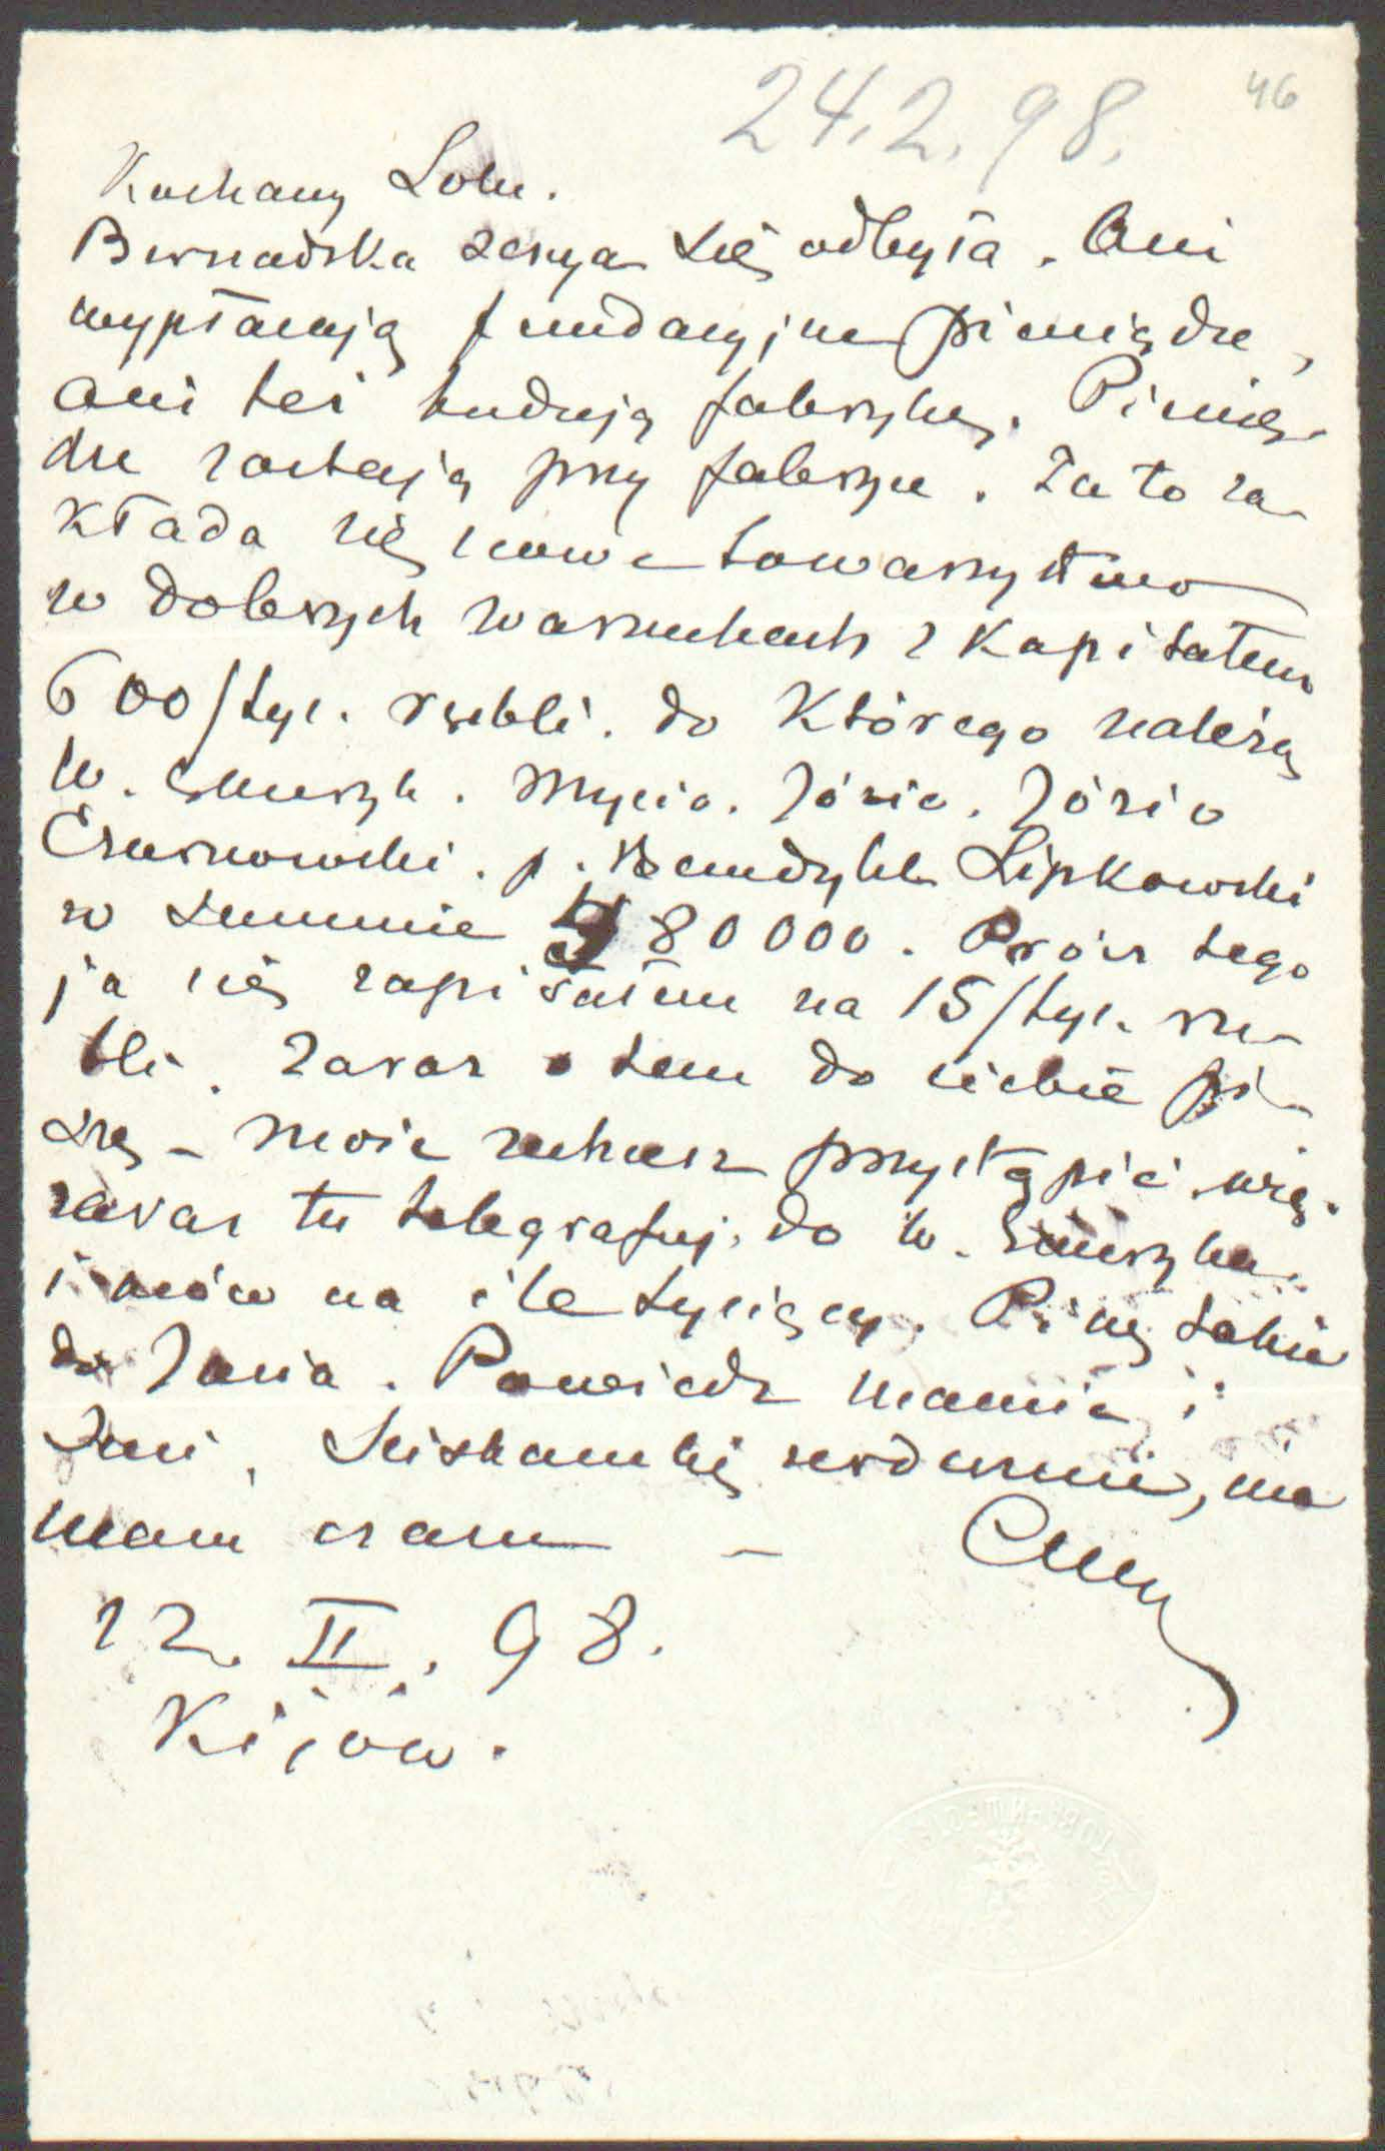 24.2.98.
46
Kochany Lolu.
Bernadska sesya się odbyła. Ani
wypłacają fundacyjne pieniądze,
ani też budują fabrykę. Pienią-
dze zostają przy fabryce. Za to za-
kłada się nowe towarzystwo
w dobrych warunkach z kapitałem
600/tys. rubli. do którego należą
W. Henryk. Mycio. Józio. Józio
Czarnowski. p. Benedykt Lipkowski
w summie 480000. Prócz tego
ja się zapisałem na 15/tys. ru-
bli. Zaraz o tem do ciebie pi-
szę – może zechcesz przystąpić, więc
zaraz tu telegrafuj, do W. Henryka
i mów na ile tysięcy. Piszę także
do Jania. Powiedz mamie i
Zuni, Ściskam cię serdecznie, nie
mam czasu –
12. II. 98.
Kijów.